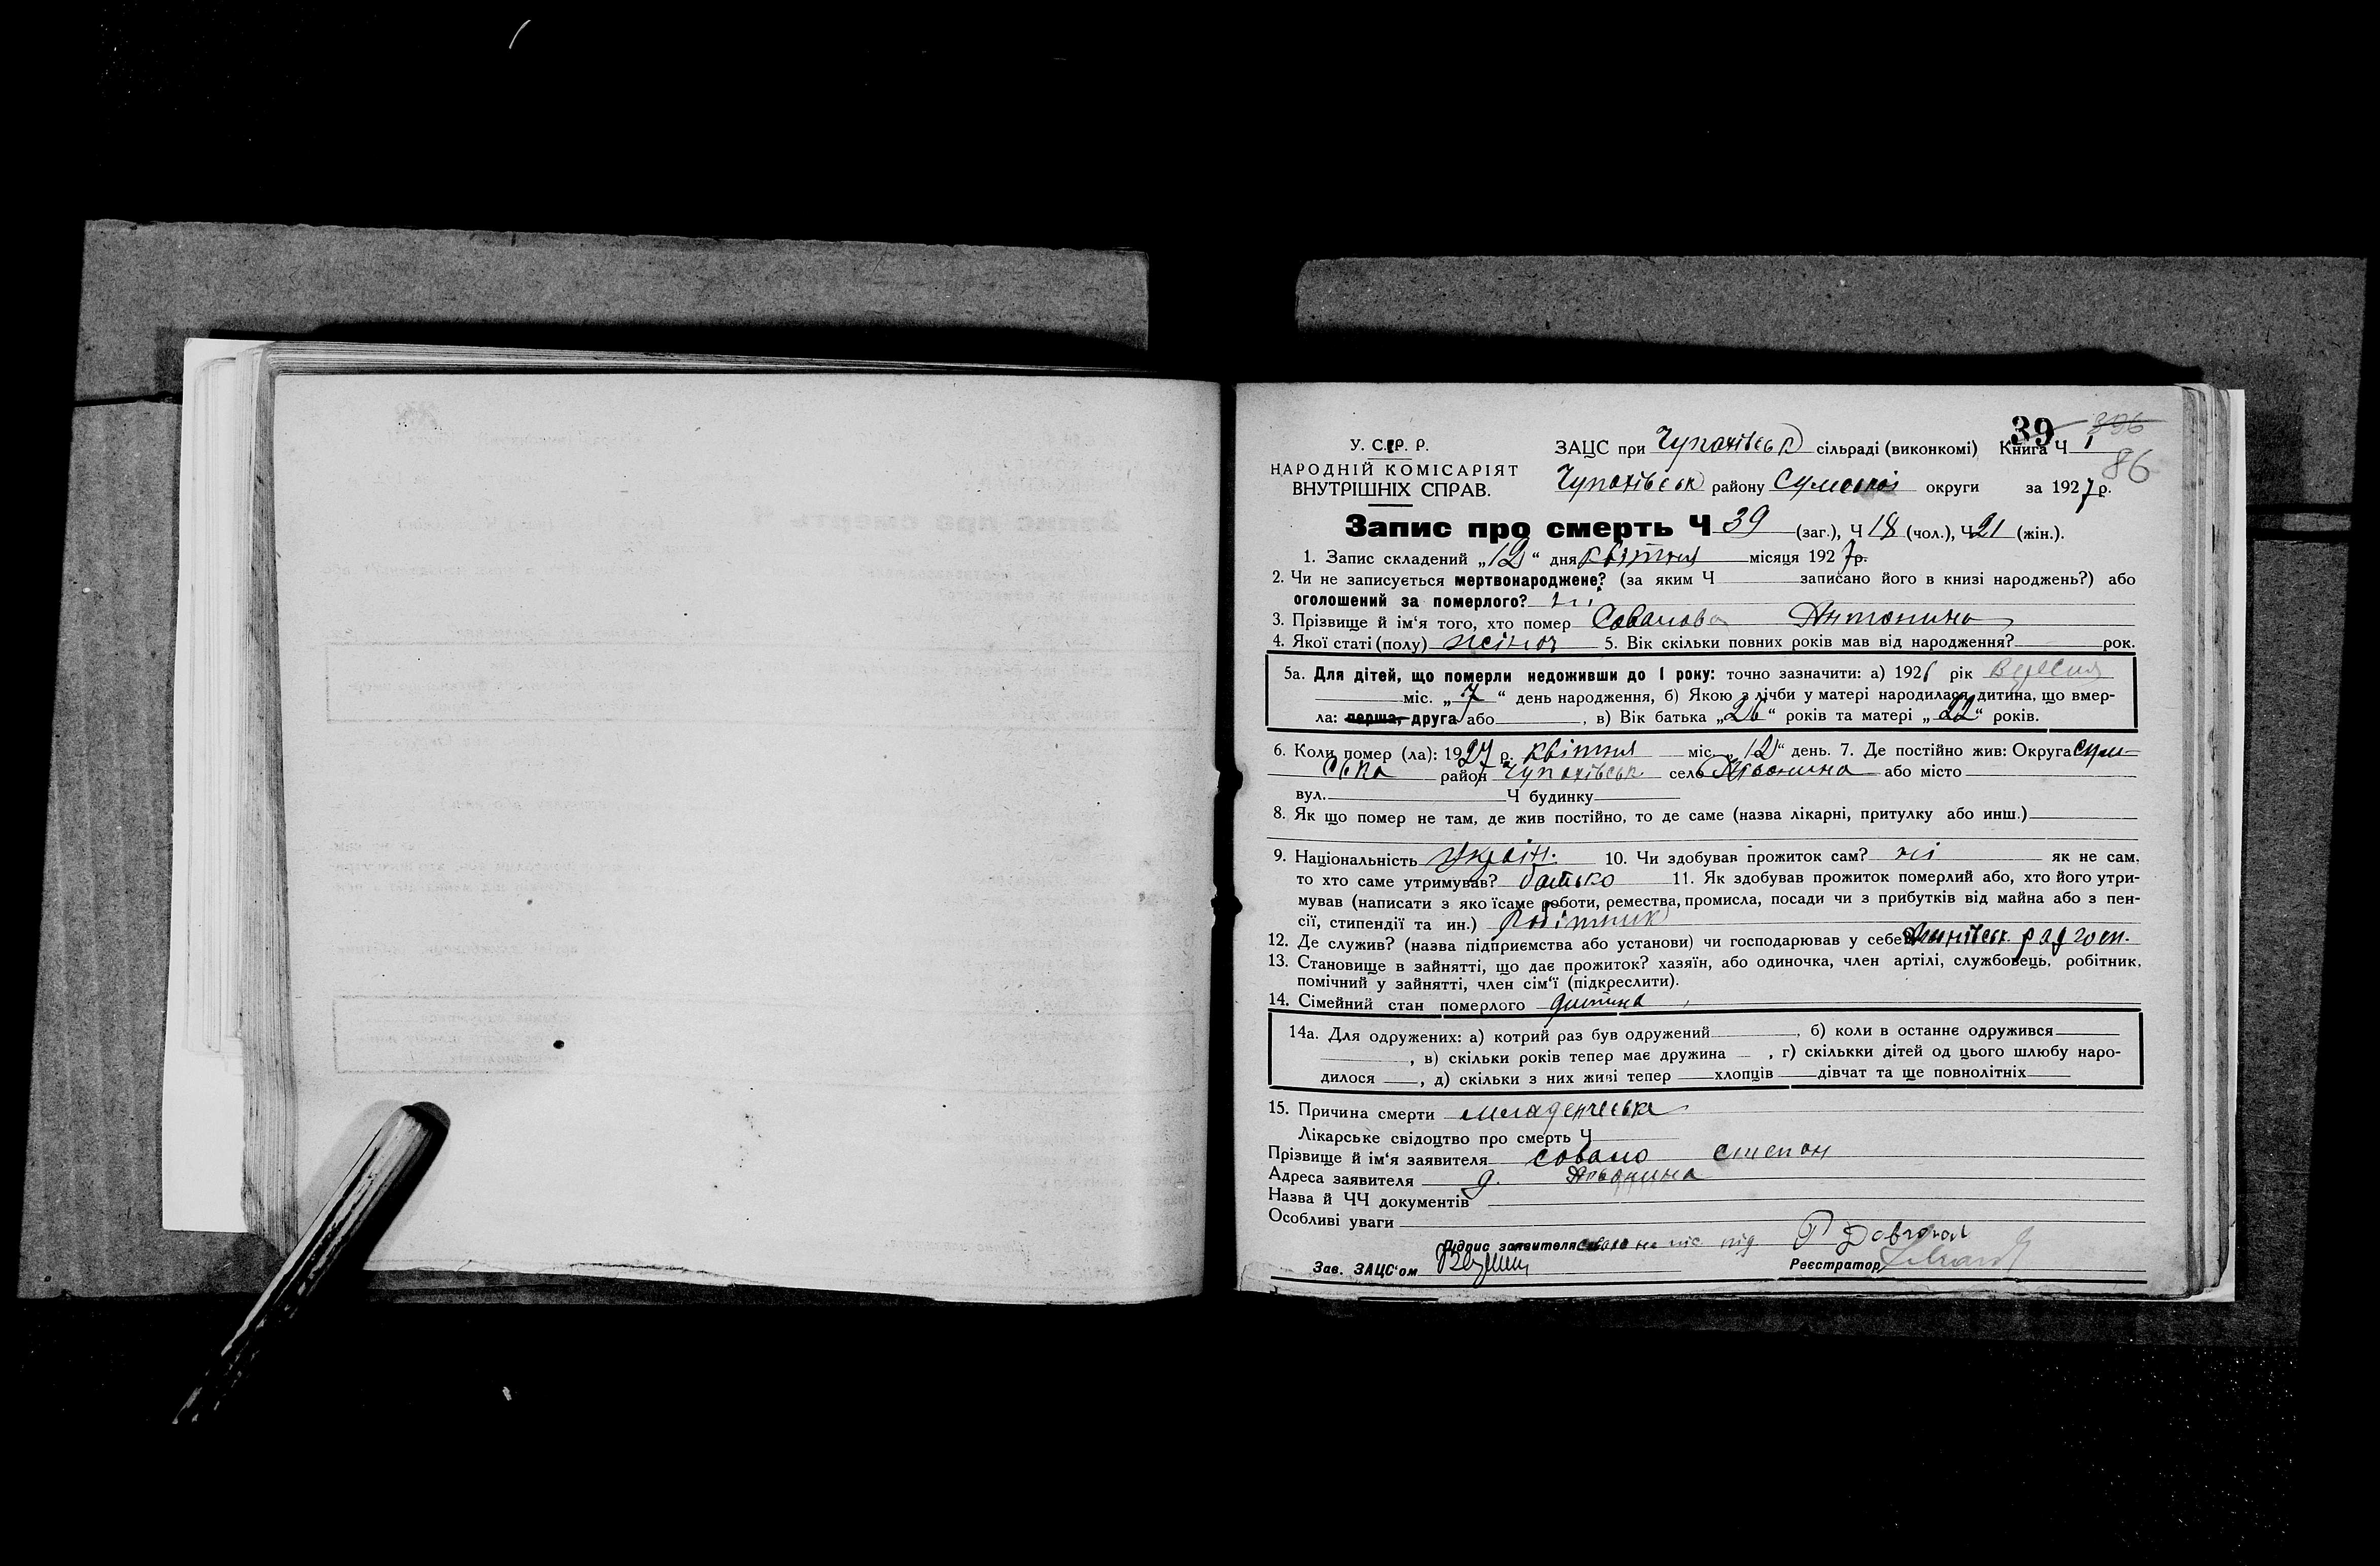 39 806
У. С. Р. Р.
ЗАЦС при Чупахівськ сільраді (виконкомі) Книга Ч 1
86
НАРОДНІЙ КОМІСАРІЯТ
ВНУТРІШНІХ СПРАВ.
Чупахівськ району Сумської округи за 1927 р.
Запис про смерть Ч 39 (заг.), Ч 18 (чол.), Ч 21 (жін.).
1. Запис складений „12“ дня квітня місяця 1927 р.
2. Чи не записується мертвонароджене? (за яким Ч записано його в книзі народжень?) або
оголошений за померлого? ні
3. Прізвище й ім‘я того, хто помер Антонина
4. Якої статі (полу) жіноч 5. Вік скільки повних років мав від народження? рок.
5а. Для дітей, що померли недоживши до 1 року: точно зазначити: а) 1926 рік вересня
міс. „7“ день народження, б) Якою з лічби у матері народилася дитина, що вмер-
ла: перша, друга або , в) Вік батька „26“ років та матері „22“ років.
6. Коли помер (ла): 1927 р. квітня міс. „12“ день. 7. Де постійно жив: Округа Сум-
ська район Чупахівськ село або місто
вул. Ч будинку
8. Як що помер не там, де жив постійно, то де саме (назва лікарні, притулку або инш.)
9. Національність Україн. 10. Чи здобував прожиток сам? ні як не сам,
то хто саме утримував? батько 11. Як здобував прожиток померлий або, хто його утри-
мував (написати з яко їсаме роботи, ремества, промисла, посади чи з прибутків від майна або з пен-
сії, стипендії та ин.) Робітник
12. Де служив? (назва підприємства або установи) чи господарював у себе радгосп.
13. Становище в зайнятті, що дає прожиток? хазяїн, або одиночка, член артілі, службовець, робітник,
помічний у зайнятті, член сім‘ї (підкреслити).
14. Сімейний стан померлого дитина
14а. Для одружених: а) котрий раз був одружений , б) коли в останнє одружився
, в) скільки років тепер має дружина — , г) скількки дітей од цього шлюбу наро-
дилося , д) скільки з них живі тепер хлопців дівчат та ще повнолітніх
15. Причина смерти младенческа
Лікарське свідоцтво про смерть Ч
Прізвище й ім‘я заявителя степан
Адреса заявителя
Назва й ЧЧ документів
Особливі уваги
Підпис заявителя
Зав. ЗАЦС‘ом Реєстратор